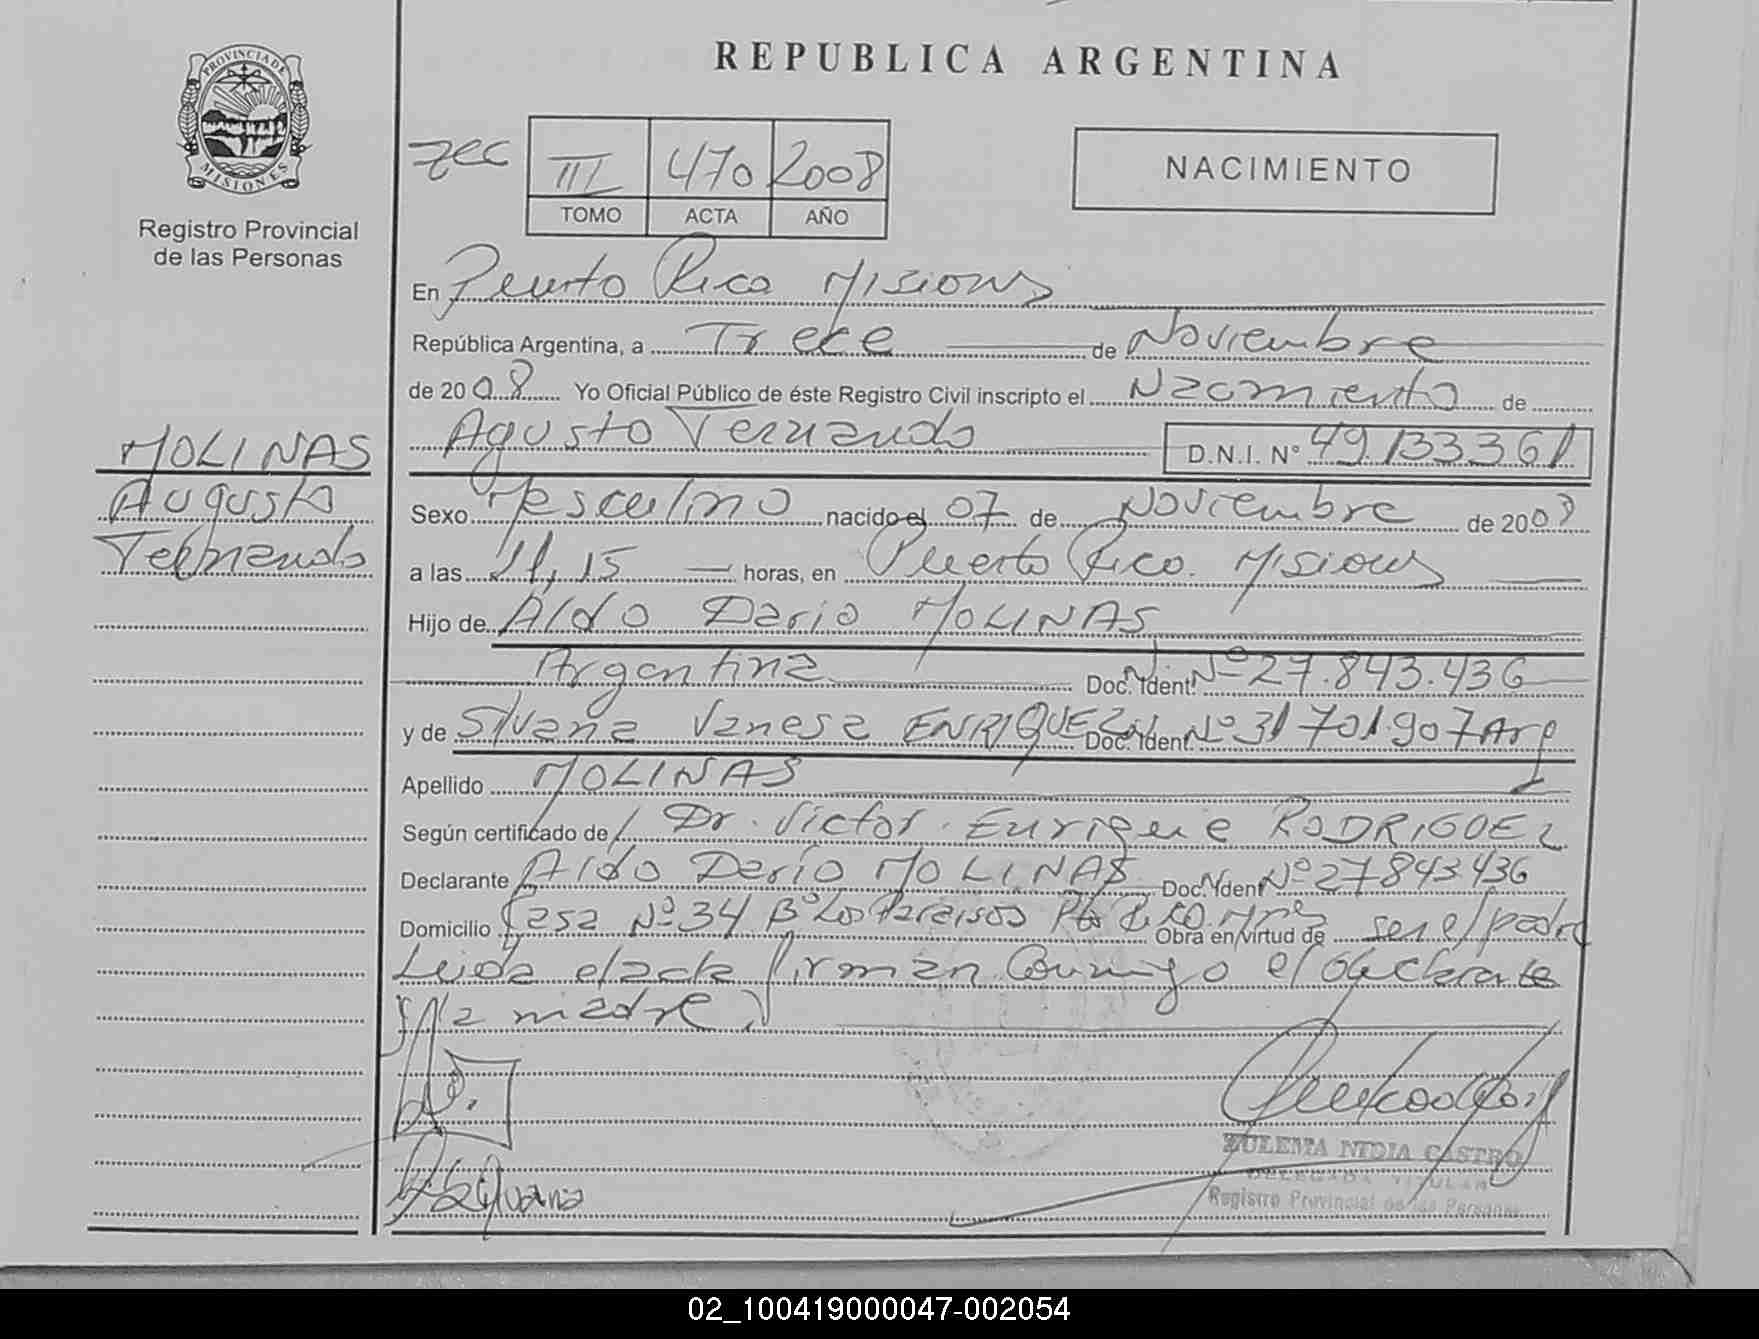 PROVINCIA DE
MISIONES
Registro Provincial
de las Personas
REPUBLICA ARGENTINA
III 470 2008
TOMO ACTA AÑO
NACIMIENTO
En Puerto Rico Misiones
República Argentina, a Trece de Noviembre
de 2008 Yo Oficial Público de éste Registro Civil inscripto el Nacimiento de
Agusto Fernando D.N.I. N° 49.133.361
MOLINAS
Augusto
Fernando
Sexo Masculino nacido el 07 de Noviembre de 2008
a las 11,15 horas, en Puerto Rico. Misiones
Hijo de Aldo Dario MOLINAS
Argentina Doc. Ident. N° 27.843.436
y de Silvana Vanesa ENRIQUEZ Doc. Ident. N° 31701.907 Arg
Apellido MOLINAS
Según certificado de Dr. Victor Enrique RODRIGUEZ
Declarante Aldo Dario MOLINAS Doc. Ident N° 27843436
Domicilio Casa N° 34 B° Los Paraisos Pto Rico. Mnes Obra en virtud de ser el padre
Leida el acta firman Conmigo el declarante
y la madre
Silvana
ZULEMA NIDIA CASTRO
DELEGADA TITULAR
Registro Provincial de las Personas
02_100419000047-002054